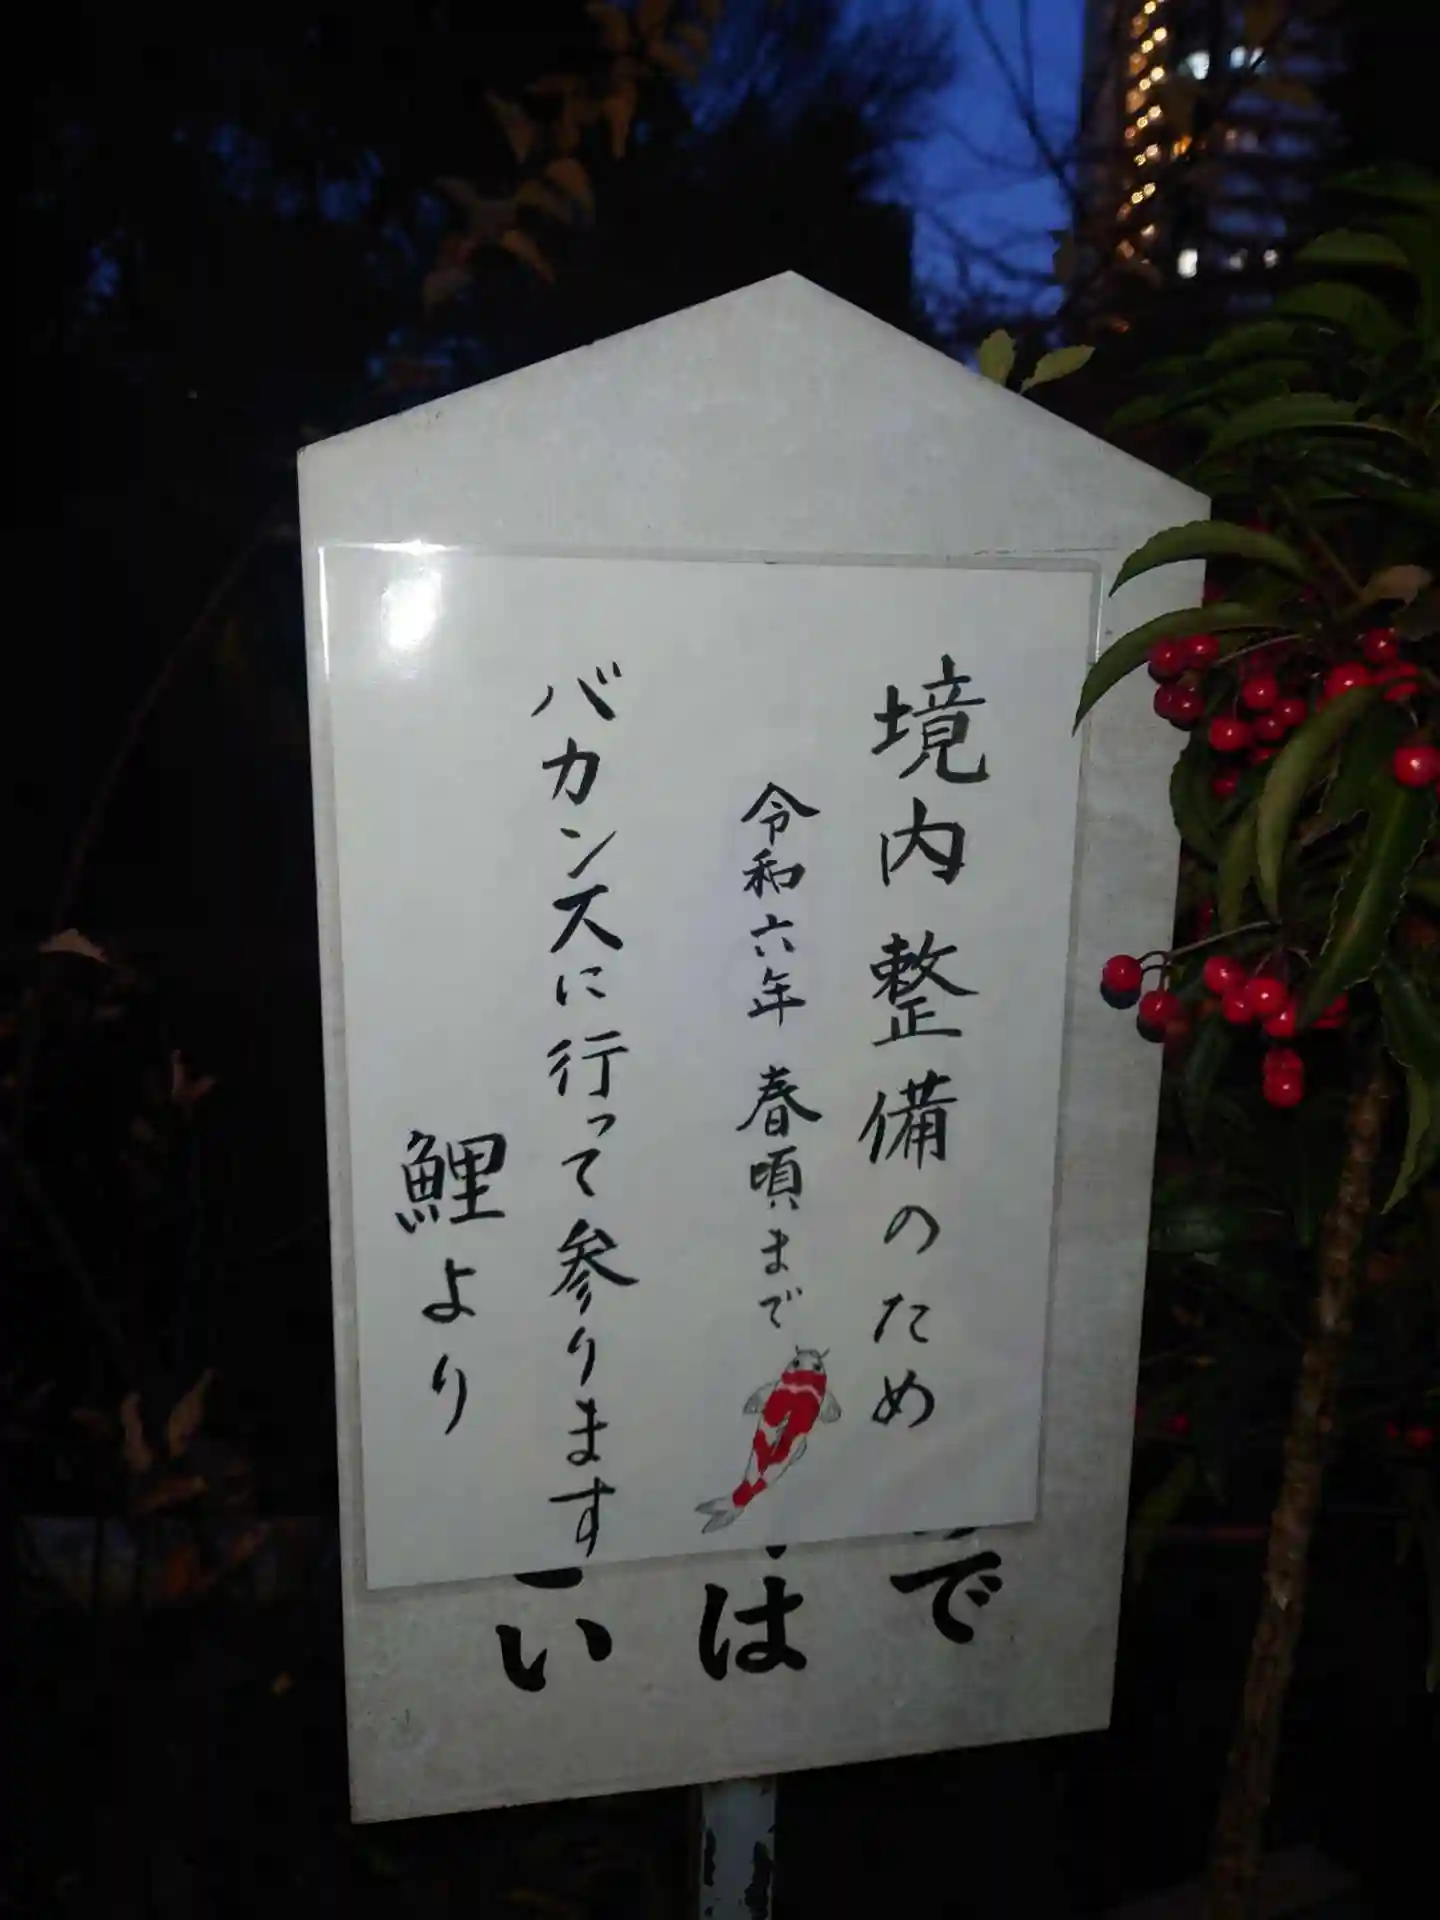 境内整備のため
令和六年 春頃まで
バカンスに行って参ります
鯉より
で
は
い